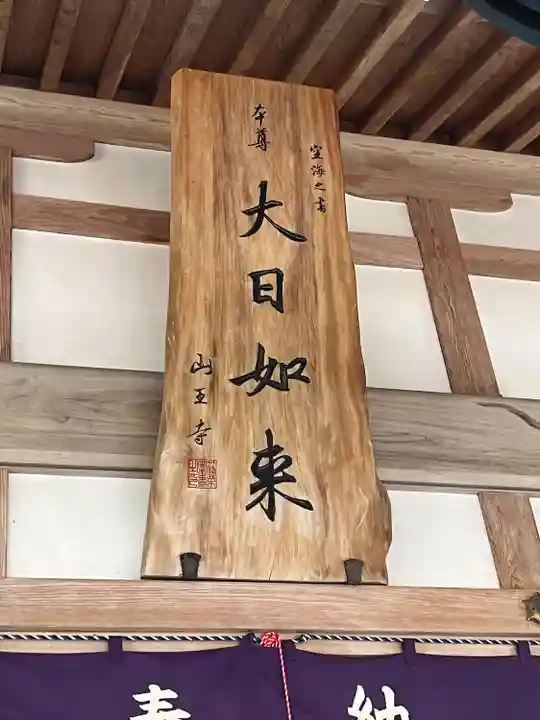 空海之書
本尊
大日如来
山王寺
奉納